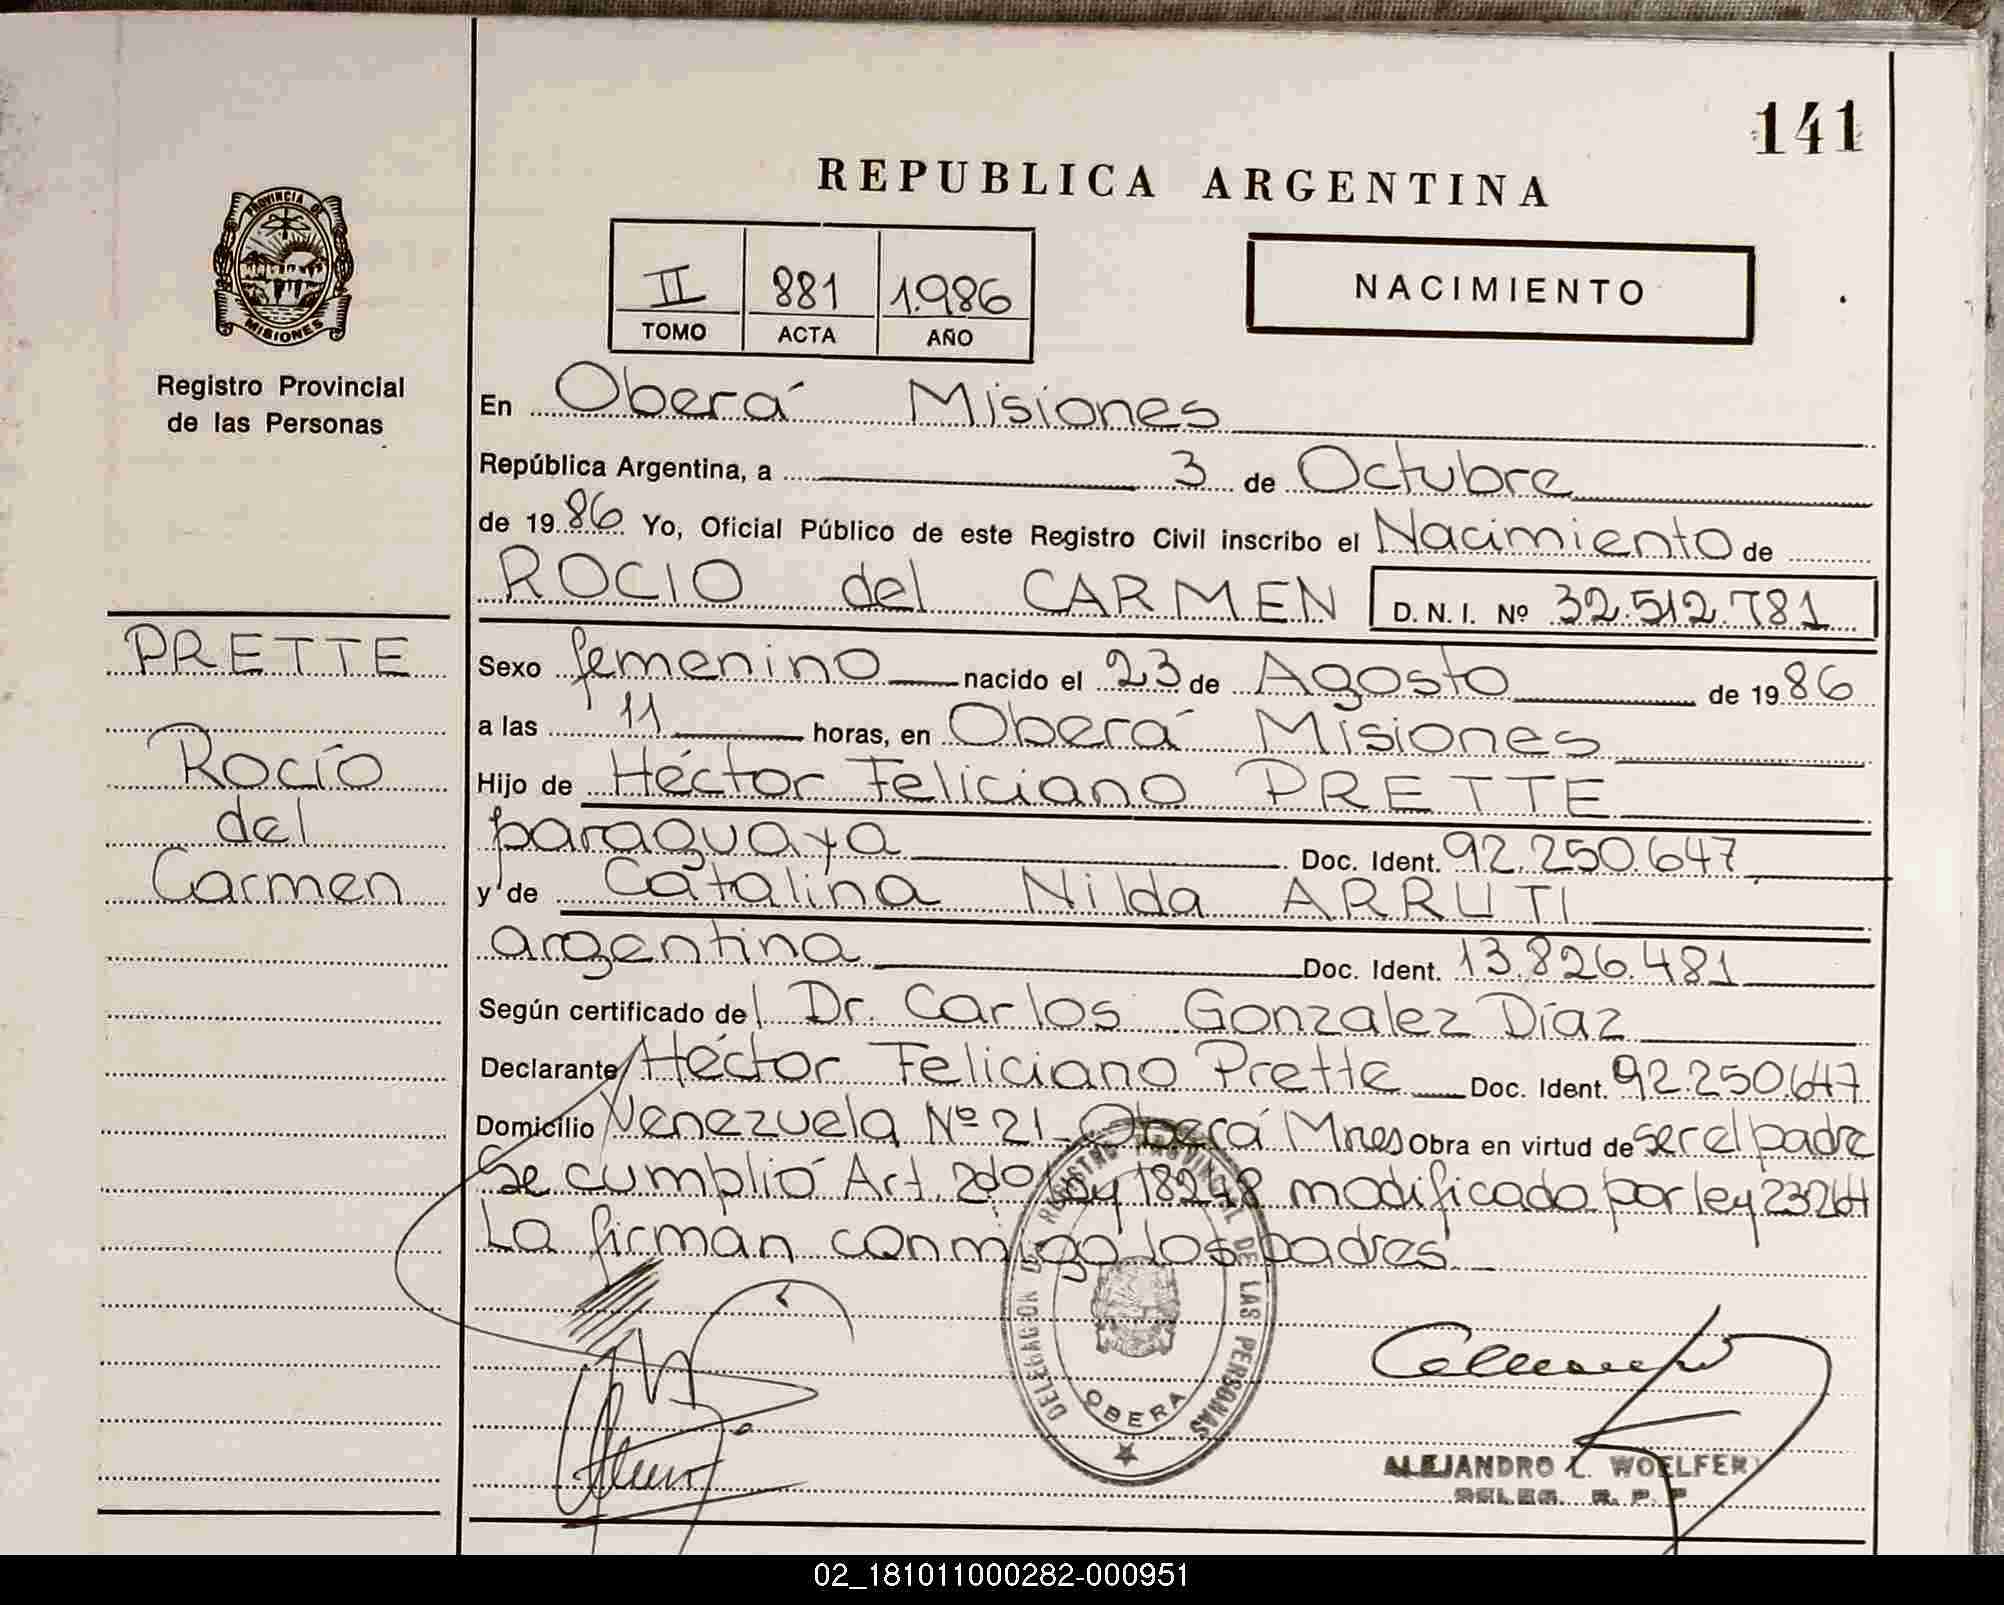 141
REPUBLICA ARGENTINA
PROVINCIA DE
MISIONES
Registro Provincial
de las Personas
II 881 1.986
TOMO ACTA AÑO
NACIMIENTO
En Oberá Misiones
República Argentina, a 3 de Octubre
de 1986 Yo, Oficial Público de este Registro Civil inscribo el Nacimiento de
ROCIO del CARMEN D.N.I. Nº 32.512.781
PRETTE
Rocío
del
Carmen
Sexo femenino nacido el 23 de Agosto de 1986
a las 11 horas, en Oberá Misiones
Hijo de Héctor Feliciano PRETTE
paraguaya Doc. Ident. 92.250.647
y de Catalina Nilda ARRUTI
argentina Doc. Ident. 13.826.481
Según certificado del Dr. Carlos Gonzalez Díaz
Declarante Héctor Feliciano Prette Doc. Ident. 92.250.647
Domicilio Venezuela Nº 21 - Oberá Mnes Obra en virtud de ser el padre
Se cumplió Art. 2do ley 18248 modificado por ley 23264
La firman conmigo los padres
DELEGACION DEL REGISTRO PROVINCIAL DE LAS PERSONAS
OBERA
ALEJANDRO L. WOELFERT
DELEG. R. P. P.
02_181011000282-000951